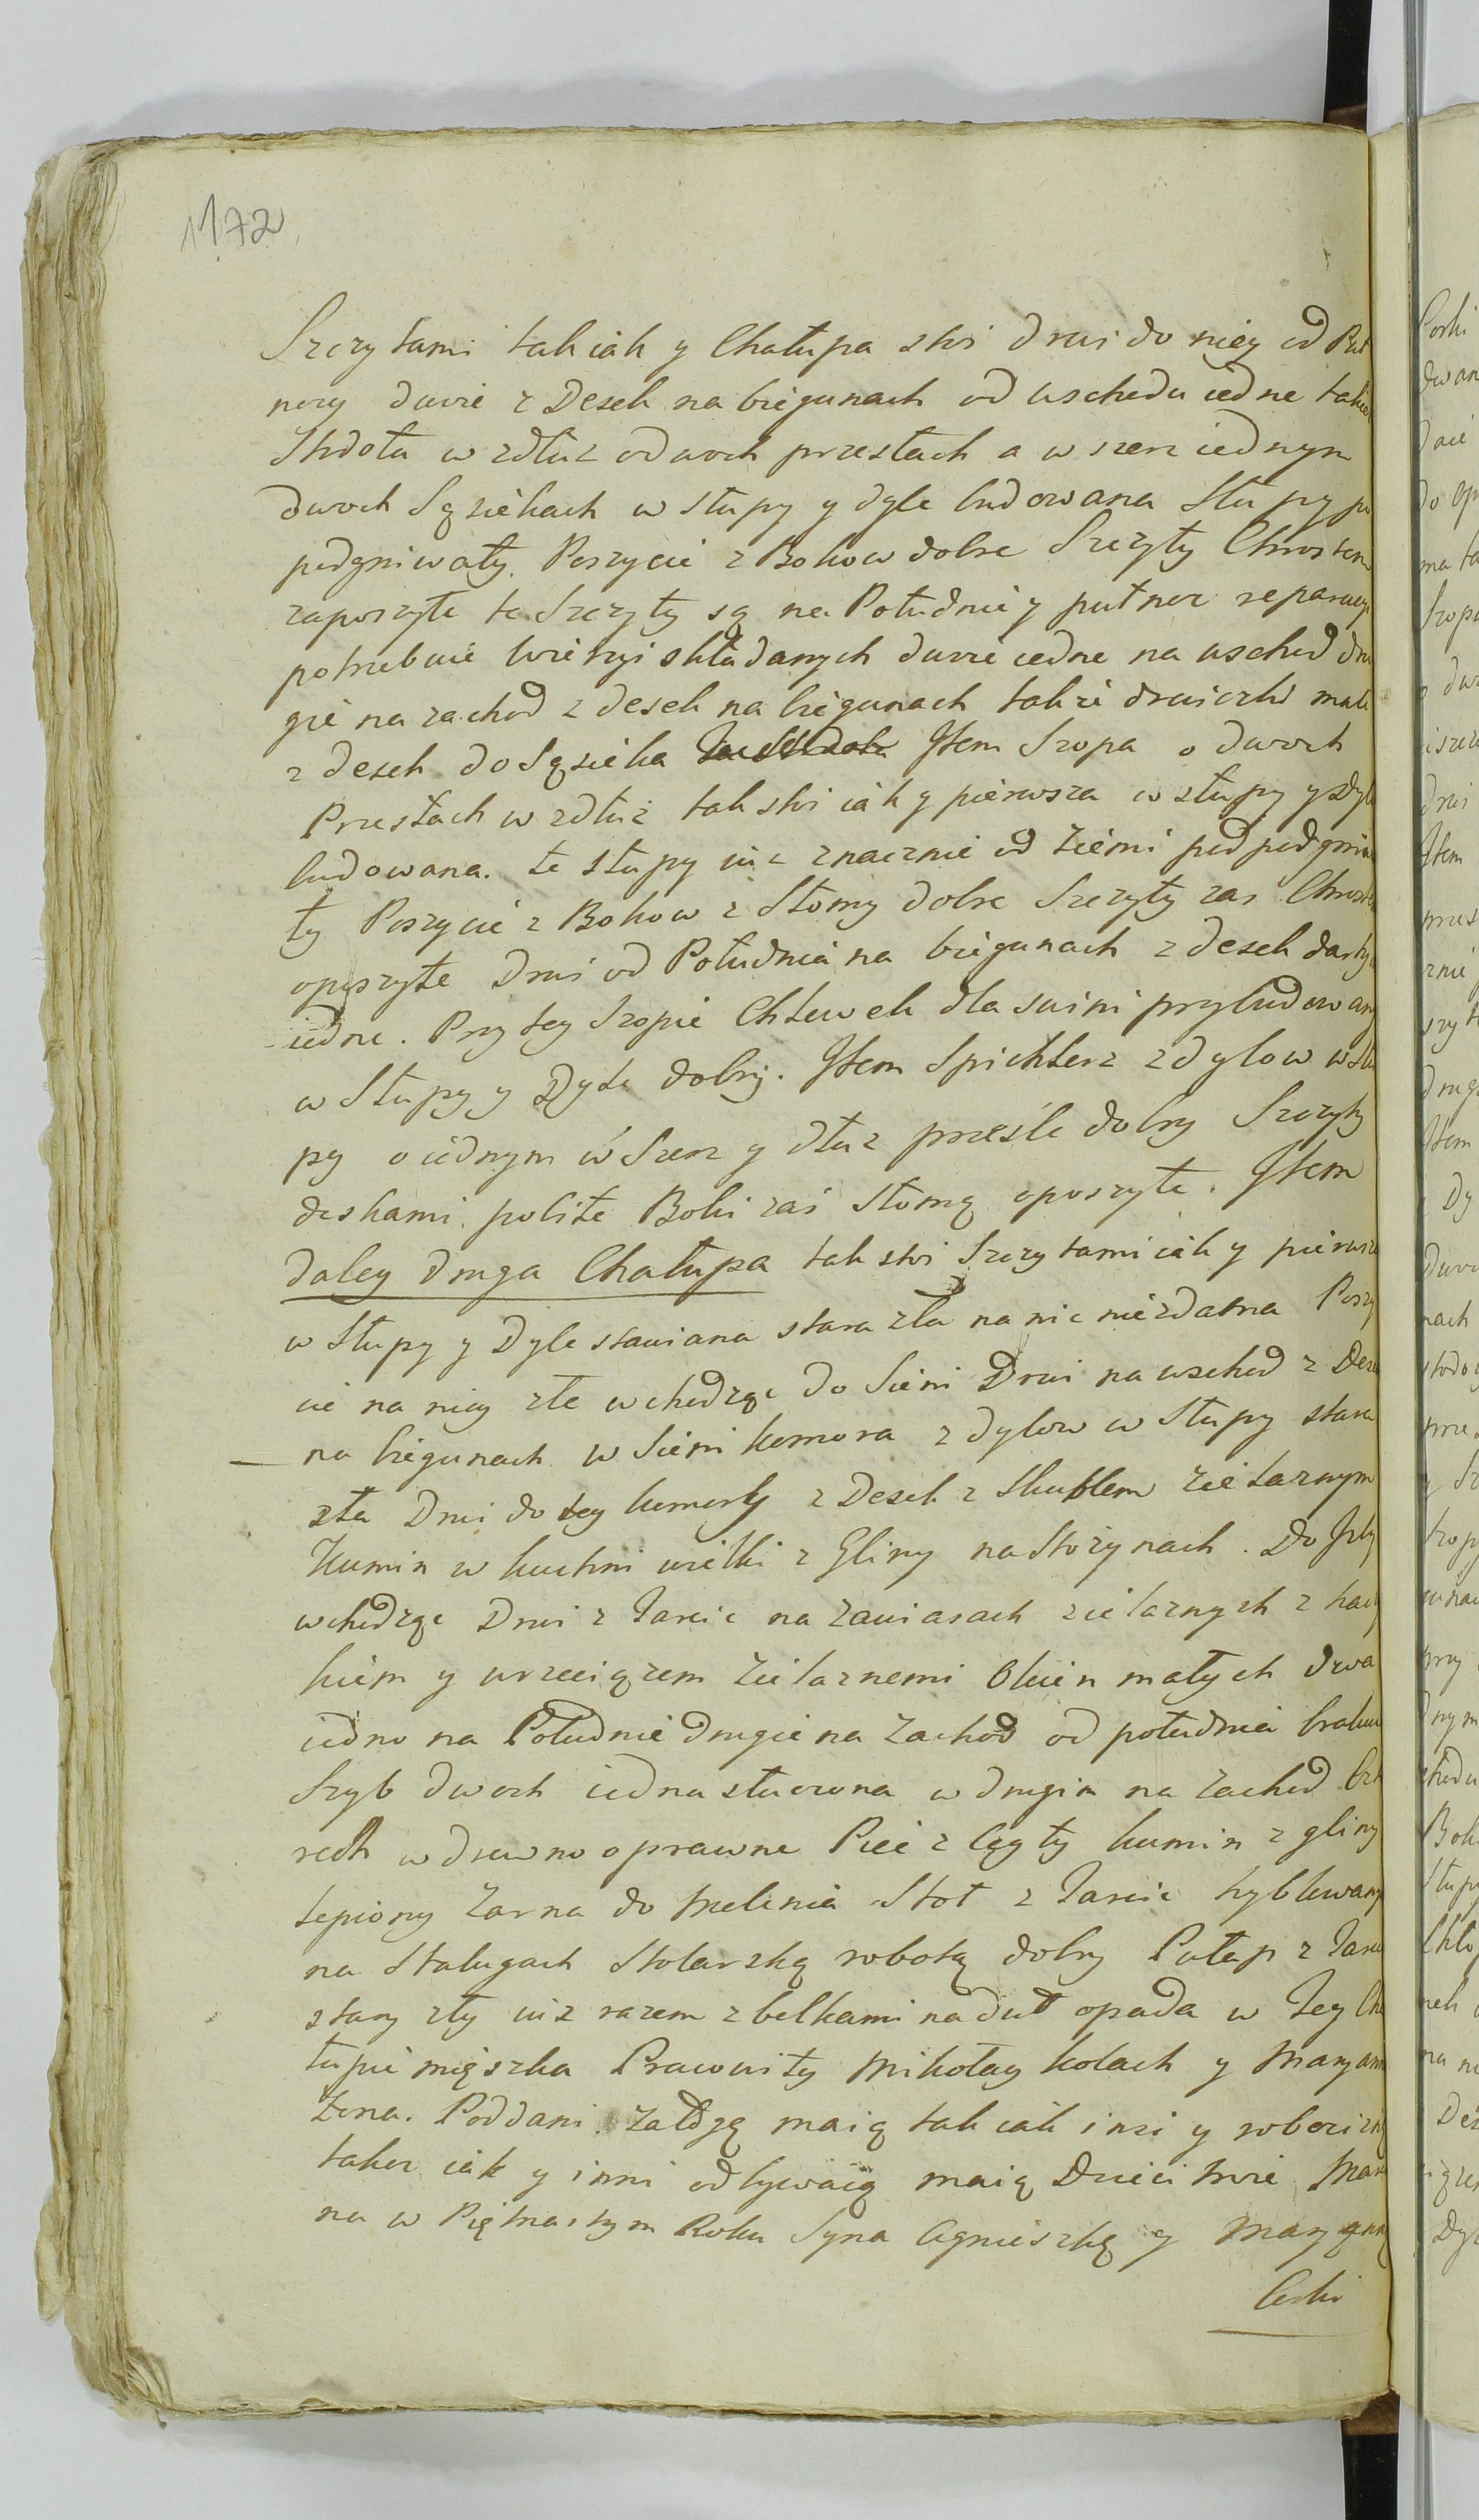 1172
Szczytami tak iak y Chałupa stoi drwi do niey od Puł
nocy dwie z Desek na biegunach od wschodu iedne takie
Stodoła w zdłuż o dwoch przesłach a w szerz iednym
dwoch Sąsiekach w słupy y dyle budowana Słupy po
podgniwały. Poszycie z Bokow dobre Szczyty Chrostem
zaposzyte te Szczyty są na Południe y pułnoc reparacyi
potrzebuie Wierzyi składanych dwoie iedne na wschod dru
gie na zachod z desek na biegunach takze drwiczki małe
z desek do Sąsieka Item Szopa o dwoch
Przesłach w zdłuż tak stoi iak y pierwsza w słupy y dyle
budowana. te słupy iuz znacznie od ziemi pod podgniwa
ły Poszycie z Bokow z Słomy dobre Szczyty zas Chrostem
oposzyte Drwi od Południa na biegunach z desek
iedne. Przy tey Szopie Chlewek dla swini przybudowany
w Słupy y Dyle dobry. Item Spichlerz z dylow w Słu
py o iednym w Szerz y dłuz prześle dobry Szczyty
deskami pobite Boki zaś Słomą oposzyte. Item
daley druga Chałupa tak stoi Szczytami iak y pierwsza
w Słupy y Dyle stawiana stara zła na nic niezdatna Poszy
cie na niey złe wchodząc do Sieni Drwi na wschod z Desek
na biegunach w Sieni komora z dylow w Słupy stara
zła Drwi do tey komorky z Desek z Skublem żelaznym
Kumin w kuchni wielki z Gliny na Stożynach. Do Izby
wchodząc Drwi z Tarcic na zawiasach żelaznych z hacz
kiem y wrzeciązem żelaznemi Okien małych dwa
iedno na Południe drugie na Zachod od południa brakuie
Szyb dwoch iedna stłuczona w drugim na zachod
w drewno oprawne Piec z Cegły kumin z gliny
lepiony Żarna do melenia Stoł z Tarcic hyblowany
na Stalugach Stolarską robotą dobry Pułap z Tarcic
stary zły iuż razem z belkami na duł opada w Tey Cha
łupie mięszka Pracowity Mikołay Kolach y Maryanna
Żona. Poddani Załogę maią tak iak insi y roboczizne
takoz iak y inni odbywaią maią Dzieci troie Mar
na w Piętnastym Roku Syna Agnieszkę y Maryannę
Corki